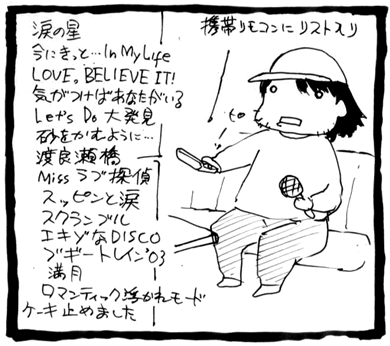 涙の星
今にきっと…In My Life
LOVE。BELIEVE IT!
気がつけばあなたがいる
Let's Do 大発見
砂をかむように…
渡良瀬橋
Missラブ探偵
スッピンと涙
スクランブル
エキゾなDISCO
ブギートレイン'03
満月
ロマンティック浮かれモード
ケーキ止めました
携帯リモコンにリスト入り